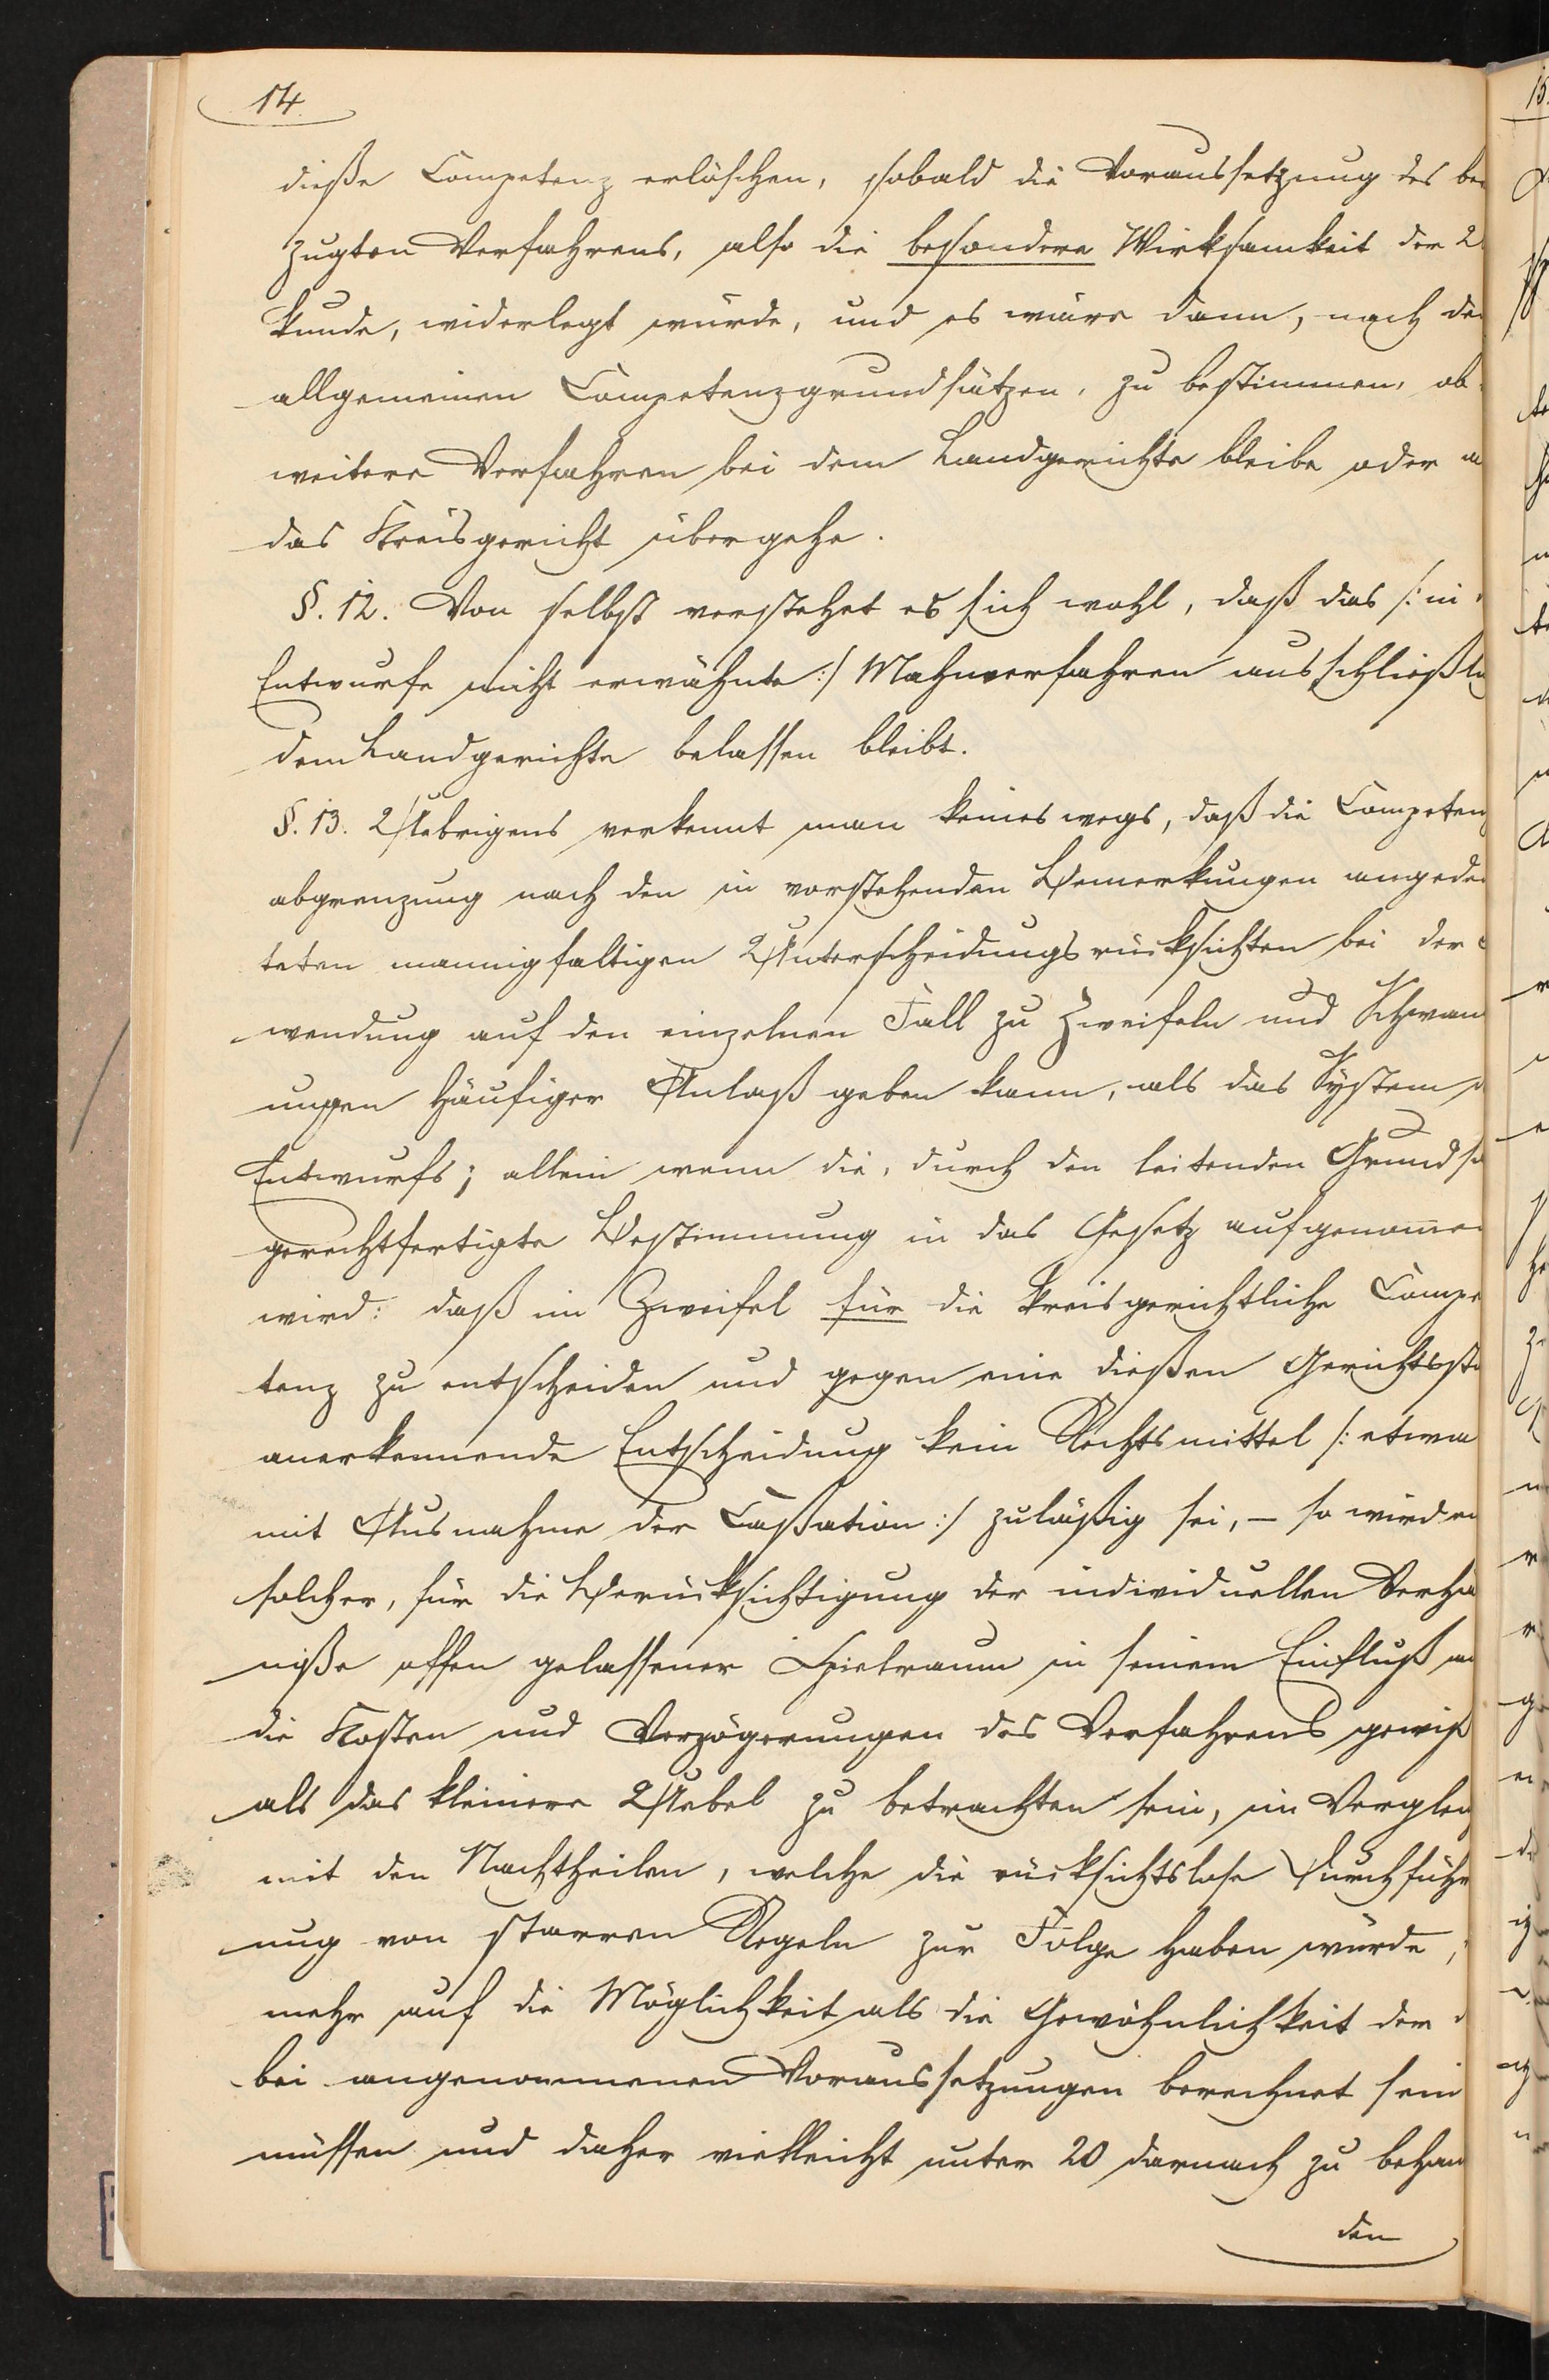 14.
dieße Competenz erlöschen, sobald die Voraussetzung des be
zugten Verfahrens, also die besondere Wirksamkeit der
kunde, widerlegt würde, und es wäre dann, nach de
allgemeinen Competenzgrundsätzen, zu bestimmen, ob
weitere Verfahren bei dem Landgerichte bleibe oder a
das Kreisgericht übergehe.
§. 12. Von selbst verstehet es sich wohl, daß das /: in
Entwurfe nicht erwähnte :/ Mahnverfahren ausschließli
dem Landgerichte belassen bleibt.
§. 13. Uebrigens verkennt man keineswegs, daß die Competenz
abgrenzung nach den in vorstehenden Bemerkungen angedeu
teten mannigfaltigen Unterscheidungsrücksichten bei der
wendung auf den einzelnen Fall zu Zweifeln und Schwan
ungen häufiger Anlaß geben kann, als das System
Entwurfs; allein wenn die, durch den leitenden Grundsa
gerechtfertigte Bestimmung in das Gesetz aufgenomme
wird: daß im Zweifel für die kreisgerichtliche Compe
tenz zu entscheiden und gegen eine dießen Gerichtssta
anerkennende Entscheidung kein Rechtsmittel /: etwa
mit Ausnahme der Caßation :/ zuläßig sei, – so wird
solcher, für die Berücksichtigung der individuellen Verhä
niße offen gelassener Spielraum in seinem Einfluß
die Kosten und Verzögerungen des Verfahrens gewiß
als das kleinere Uebel zu betrachten sein, im Verglei
mit den Nachtheilen, welche die rücksichtslose Durchführ
ung von starren Regeln zur Folge haben würde,
mehr auf die Möglichkeit als die Gewöhnlichkeit der
bei angenommenen Voraussetzungen berechnet sein
müssen und daher vielleicht unter 20 darnach zu behan
den
15.